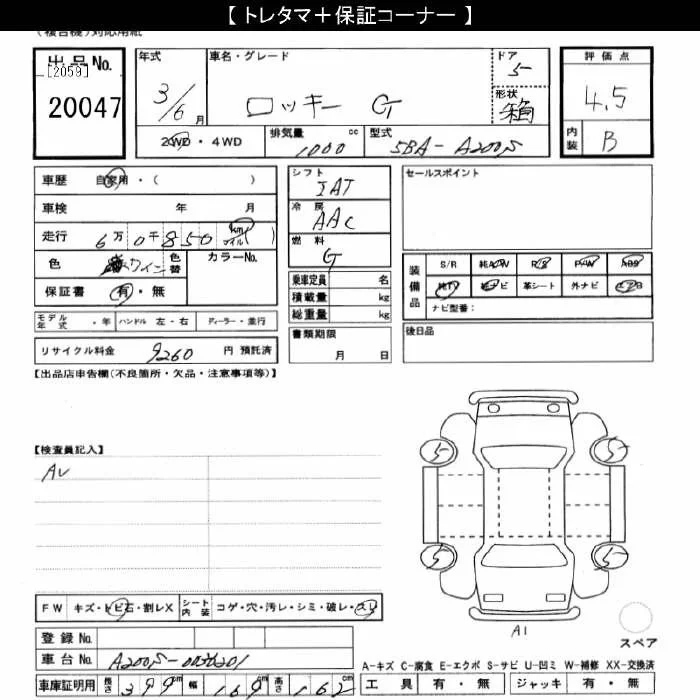 【 トレタマ＋保証コーナー 】
(複合機)対応用紙
出品No.
[2059]
20047
年式
3/6月
車名・グレード
ロッキー G
ドア
5
形状
箱
評価点
4.5
内装
B
2WD・4WD
排気量
1000 cc
型式
5BA-A200S
車歴 自家用・( )
車検 年 月
走行 6万0千850 km マイル )
色 ワイン 色替
カラーNo.
保証書 有・無
モデル年式 ・年 ハンドル 左・右 ディーラー・並行
リサイクル料金 9260 円 預託済
シフト
IAT
冷房
AAC
燃料
G
乗車定員 名
積載量 kg
総重量 kg
書類期限
月 日
セールスポイント
装備品
S/R 純AW P/S P/W ABS
純TV 純ナビ 革シート 外ナビ エアB
ナビ型番：
後日品
【出品店申告欄(不良箇所・欠品・注意事項等)】
【検査員記入】
AV
FW キズ・トビ石・割レX シート内装 コゲ・穴・汚レ・シミ・破レ・スレ
登録No.
車台No. A200S-0030201
車庫証明用 長さ 399cm 幅 169cm 高さ 162
5
5
5
5
A1
スペア
A-キズ C-腐食 E-エクボ S-サビ U-凹ミ W-補修 XX-交換済
工具 有・無 ジャッキ 有・無